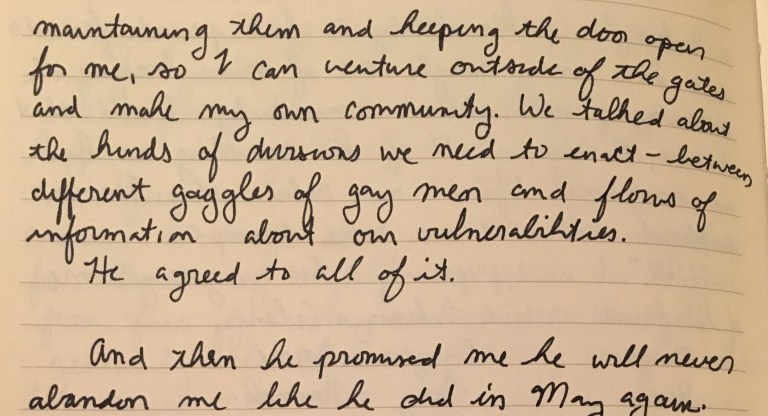 maintaining them and keeping the door open
for me, so I can venture outside of the gates
and make my own community. We talked about
the kinds of divisions we need to enact - between
different gaggles of gay men and flows of
information about our vulnerabilities.
He agreed to all of it.
And then he promised me he will never
abandon me like he did in May again.